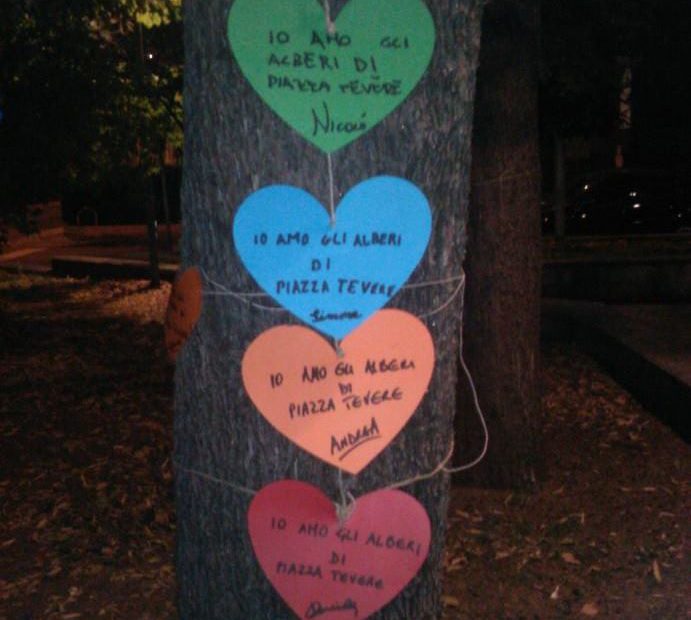 IO AMO GLI
ALBERI DI
PIAZZA TEVERE
Nicolò
IO AMO GLI ALBERI
DI
PIAZZA TEVERE
Simone
IO AMO GLI ALBERI
DI
PIAZZA TEVERE
ANDREA
IO AMO GLI ALBERI
DI
PIAZZA TEVERE